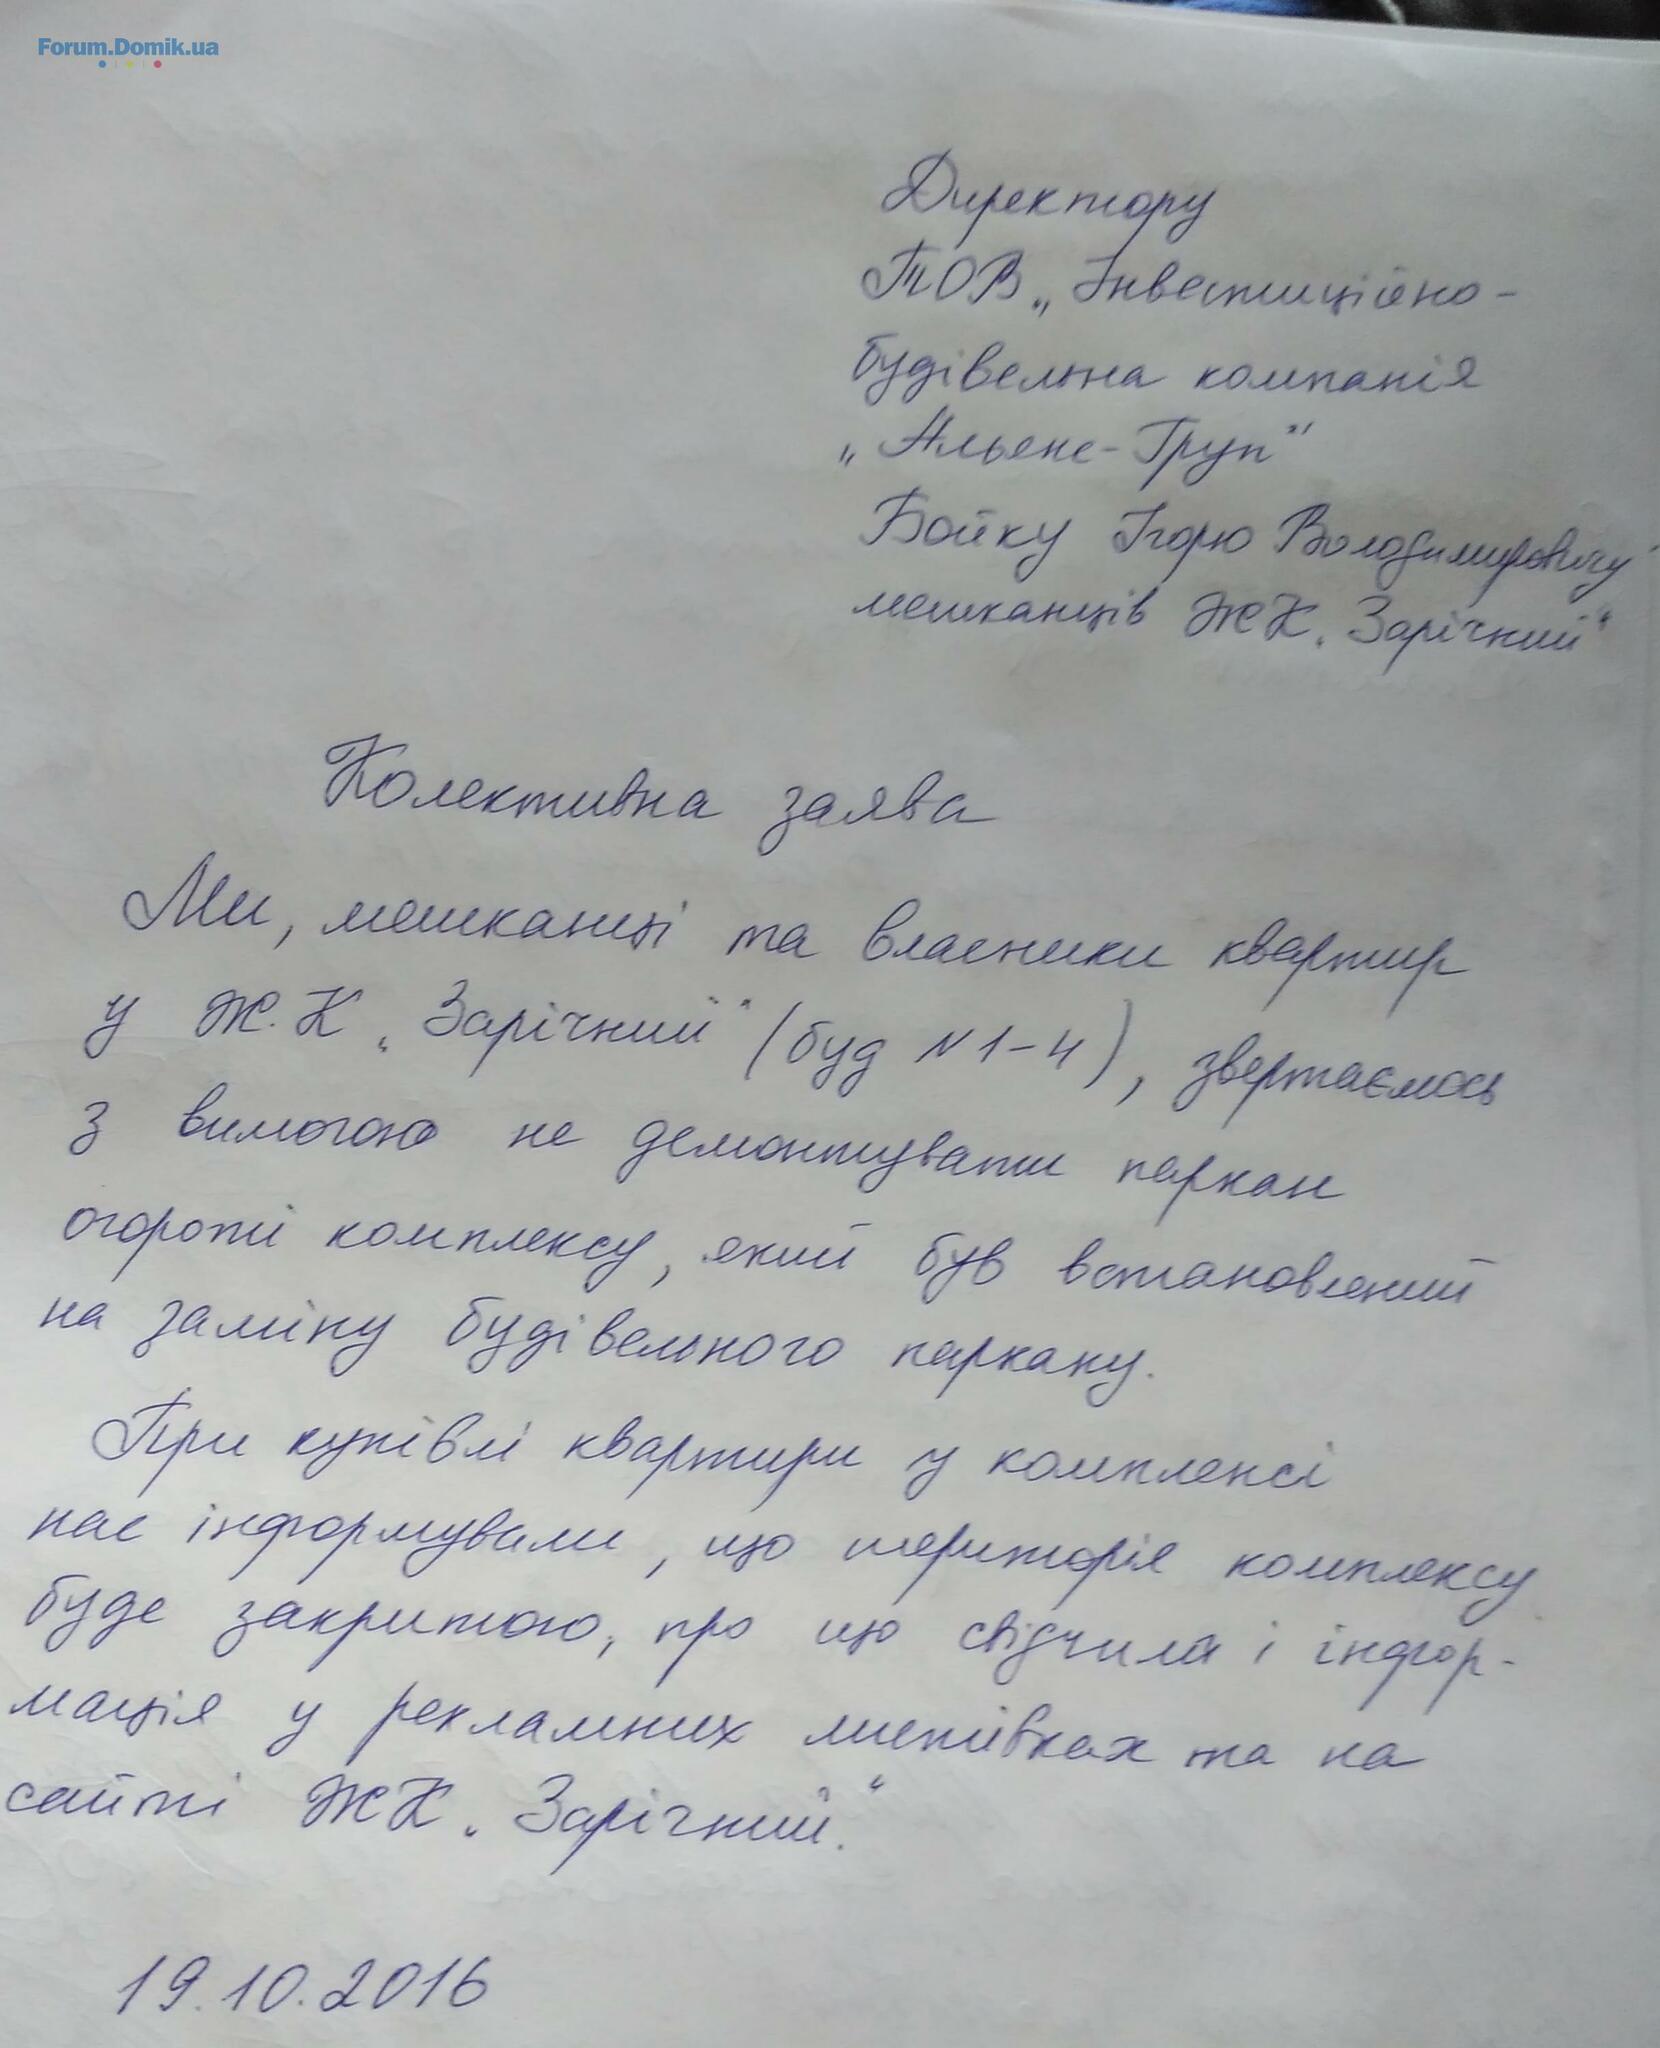 Forum.Domik.ua
Директору
ТОВ „Інвестиційно-
будівельна компанія
„Альянс-Груп"
Бойку Ігорю Володимировичу
мешканців ЖК „Зарічний"
Колективна заява
Ми, мешканці та власники квартир
у Ж.К „Зарічний" (буд N1-4), звертаємось
з вимогою не демонтувати паркан
огорожі комплексу, який був встановлений
на заміну будівельного паркану.
При купівлі квартири у комплексі
нас інформували, що територія комплексу
буде закритою, про що свідчила і інфор-
мація у рекламних листівках та на
сайті ЖК „Зарічний."
19.10.2016